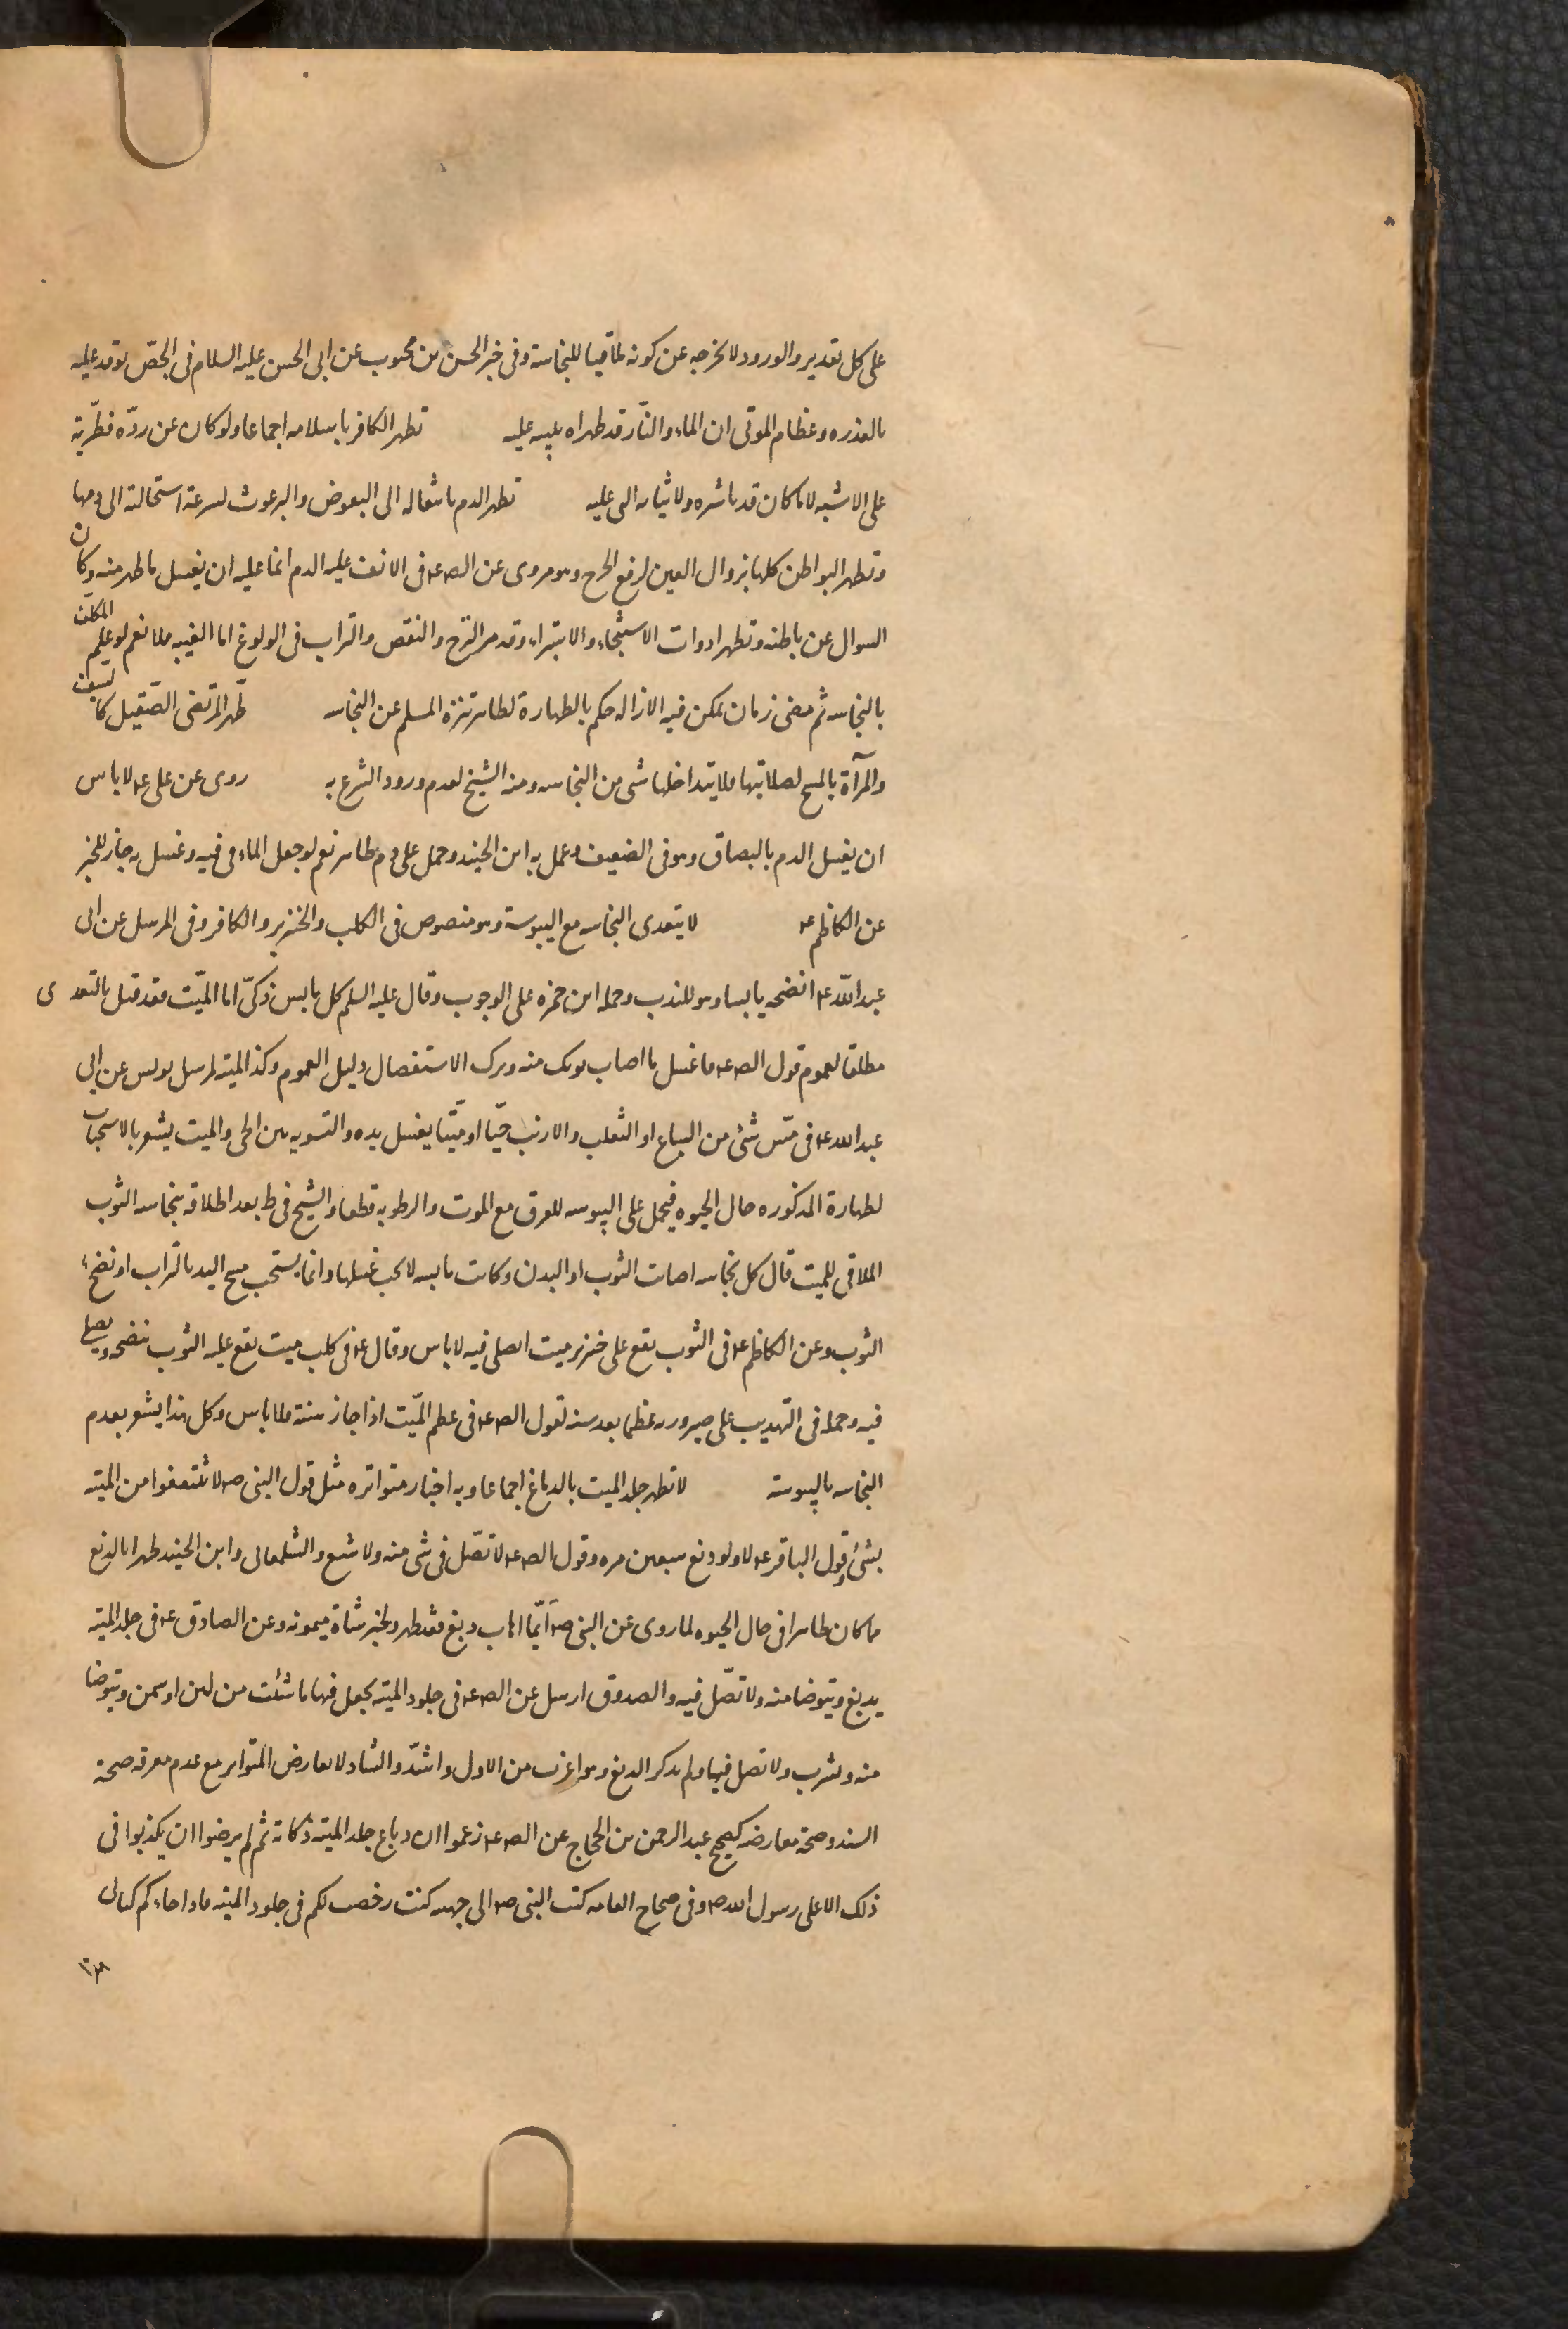 على كل تقدير والورود لا يخرجه عن كونه ملاقيا للنجاسة وفى خبر الحسن بن محبوب عن ابى الحسن عليه السلام فى الجص يوقد عليه
بالعذره وعظام الموتى ان الماء والنار قد طهراه عليه تطهر الكافر باسلامه اجماعا ولو كان عن ردّه فطريّه
على الاشبه لا ما كان قد باشره ولا ثيابه التى عليه تطهر الدم بانتقاله الى البعوض والبرغوث لسرعة استحالته الى دمها
وتطهر البواطن كلها بزوال العين لرفع الحرج وهو مروى عن الص ع فى الانف عليه الدم انما عليه ان يغسل ما ظهر منه وكان
السوال عن باطنه وتطهر ادوات الاستنجاء والاستبراء وقد مر النزح والنقص والتراب فى الولوغ اما الغيبه فلا نعم لو علم المكلف
بالنجاسه ثم مضى زمان يمكن فيه الازاله حكم بالطهارة لظاهر تنزه المسلم عن النجاسه طهّر المرتضى الصقيل كالسيف
والمرآة بالمسح لصلابتها فلا يتداخلها شى من النجاسه ومنه الشيخ لعدم ورود الشرع به روى عن على ع لا باس
ان يغسل الدم بالبصاق وهو فى الضعيف وعمل به ابن الجنيد وحمل على دم طاهر نعم لو جعل الماء فى فيه وغسل به جاز للخبر
عن الكاظم ع لا يتعدى النجاسه مع اليبوسة وهو منصوص فى الكلب والخنزير والكافر وفى المرسل عن ابى
عبد اللّه ع انضحه يابسا وهو للندب وحمله ابن حمزه على الوجوب وقال عليه السلم كل يابس ذكىّ اما الميّت فقد قيل بالتعدى
مطلقا لعموم قول الص ع فاغسل ما اصاب ثوبك منه وترك الاستفصال دليل العموم وكذا الميته لمرسل يونس عن ابى
عبد الله ع فى مسّ شئ من السباع او الثعلب والارنب حيّا او ميّتا يغسل يده والتسويه بين الحى والميت يشعر بالاستحباب
لطهارة المذكوره حال الحيوه فيحمل على اليبوسه للفرق مع الموت والرطوبه قطعا والشيخ فى ط بعد اطلاقه بنجاسه الثوب
الملاقى للميت قال كل نجاسه اصابت الثوب او البدن وكانت يابسه لا يجب غسلها وانما يستحب مسح اليد بالتراب او نضح
الثوب وعن الكاظم ع فى الثوب يقع على خنزير ميت ايصلى فيه لا باس وقال ع فى كلب ميت يقع عليه الثوب ينضحه ويصلى
فيه وحمله فى التهذيب على صيرورته عظما بعد سنه لقول الص ع فى عظم الميّت اذا جاز سنة فلا باس وكل هذا يشعر بعدم
النجاسه باليبوسة لا تطهر جلد الميت بالدباغ اجماعا وبه اخبار متواتره مثل قول النبى ص لا تنتفعوا من الميته
بشئ وقول الباقر ع لا ولو دبغ سبعين مره وقول الص ع لا تصّل فى شى منه ولا شسع والشلمغانى وابن الجنيد طهرا بالدبغ
ما كان طاهرا فى حال الحيوه لما روى عن النبى ص ايّما اهاب دبغ فقد طهر ولخبر شاة ميمونه وعن الصادق ع فى جلد الميته
يدبغ ويتوضا منه ولا تصّل فيه والصدوق ارسل عن الص ع فى جلود الميته يجعل فيها ما شئت من لبن او سمن ويتوضا
منه وتشرب ولا تصل فيها ولم يذكر الدبغ وهو اغرب من الاول واشذّ والشاذ لا يعارض المتواتر مع عدم معرفه صحة
السند وصحة معارضه كصحيح عبد الرحمن بن الحجاج عن الص ع زعموا ان دباغ جلد الميته ذكاته ثم لم يرضوا ان يكذبوا فى
ذلك الا على رسول الله ص وفى صحاح العامه كتب النبى ص الى جهينه كنت رخصت لكم فى جلود الميته فاذا جاءكم كتابى